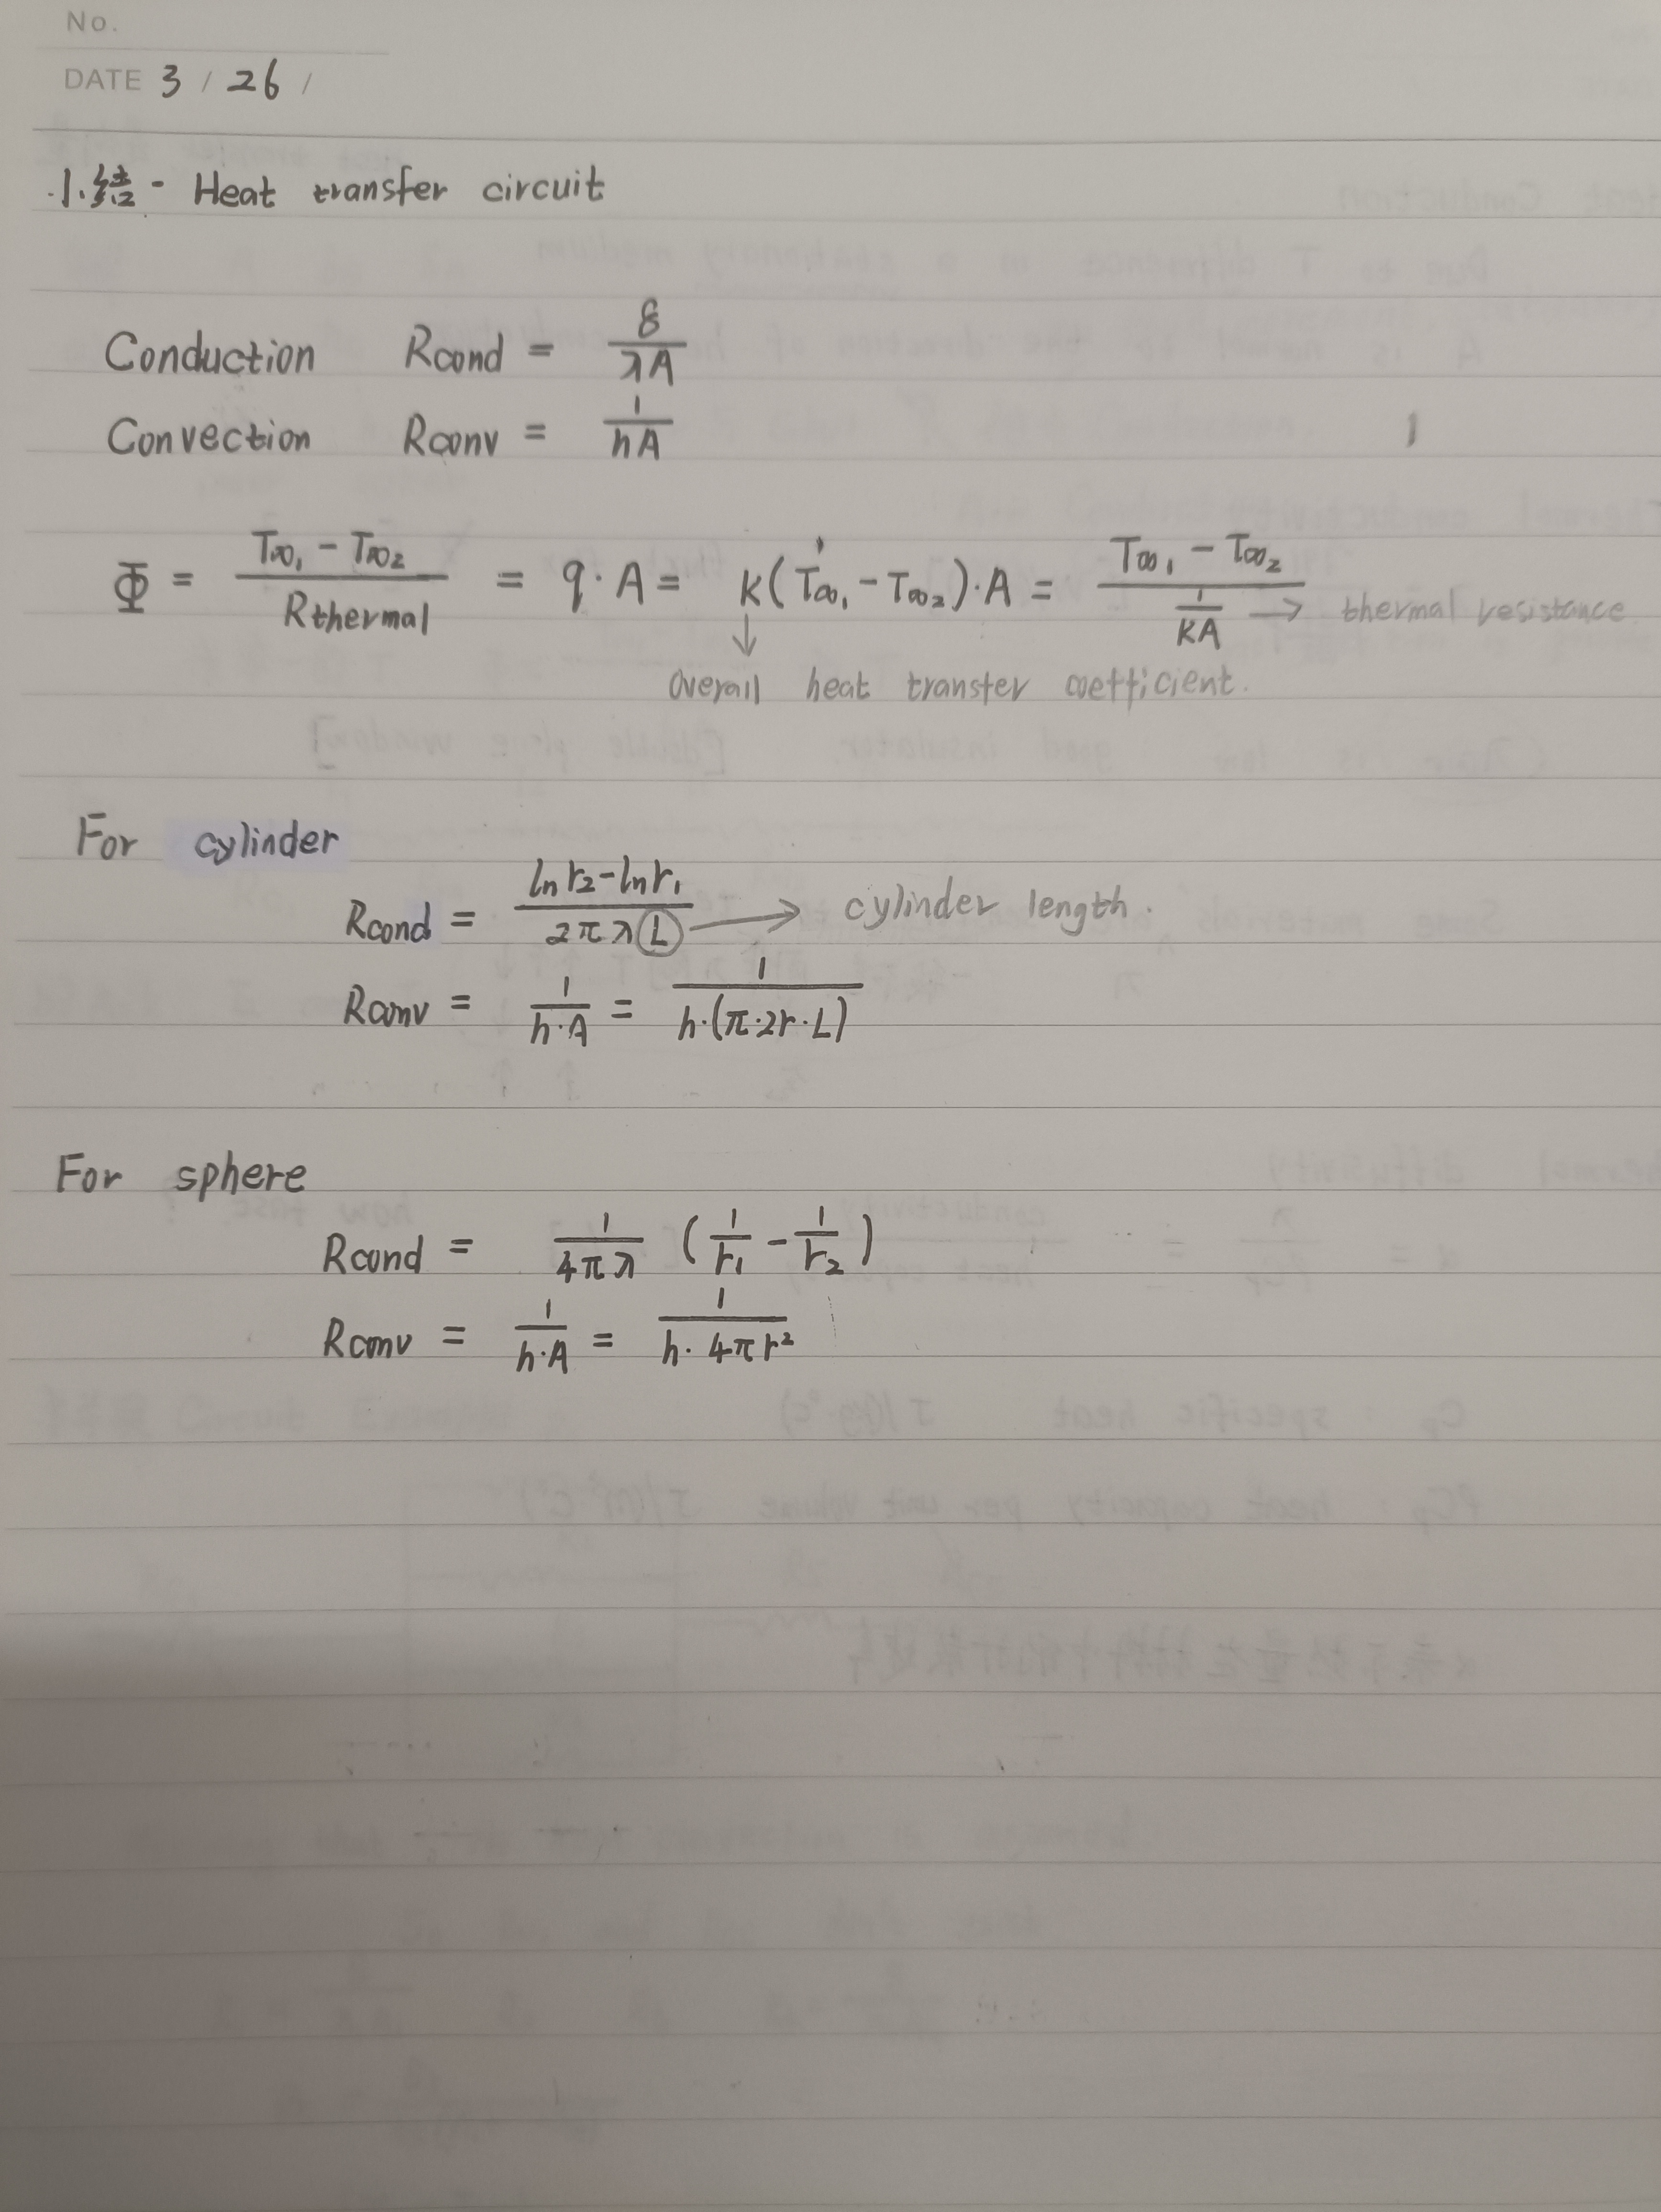 No.
DATE 3 / 26 /
小结 - Heat transfer circuit
Conduction Rcond = δ/(λA)
Convection Rconv = 1/(hA)
Φ = (T∞₁ - T∞₂)/Rthermal = q · A = K(T∞₁ - T∞₂) · A = (T∞₁ - T∞₂)/(1/(KA)) → thermal resistance
↓
Overall heat transfer coefficient.
For cylinder
Rcond = (ln r₂ - ln r₁)/(2πλL) → cylinder length.
Rconv = 1/(h·A) = 1/(h·(π·2r·L))
For sphere
Rcond = 1/(4πλ) (1/r₁ - 1/r₂)
Rconv = 1/(h·A) = 1/(h·4πr²)